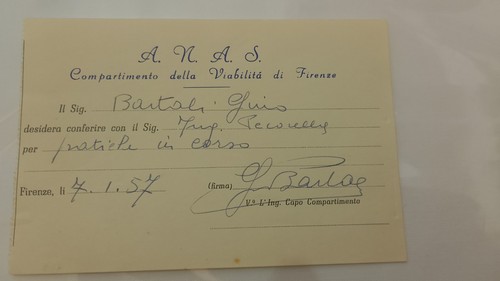 A. N. A. S.
Compartimento della Viabilitá di Firenze
Il Sig. Bartali Gino
desidera conferire con il Sig. Ing.
per pratiche in corso
Firenze, li 7.1.57 (firma) G Bartali
V.º L'Ing. Capo Compartimento